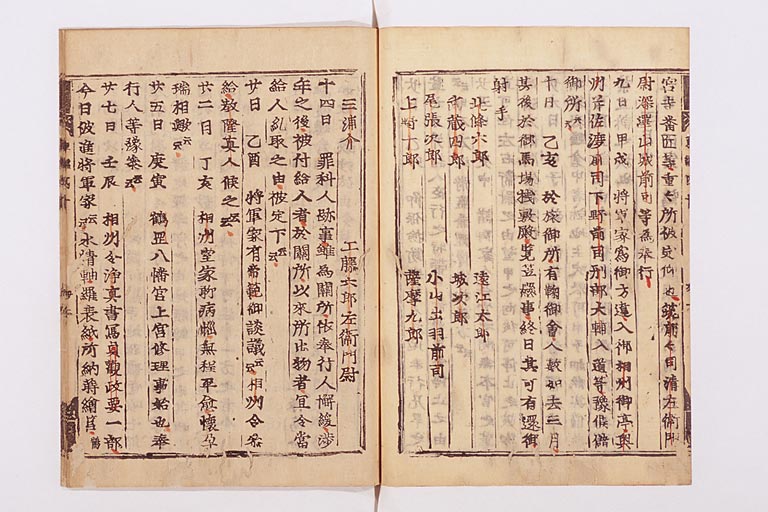 宮寺番匠等重々所被定仰也筑前々司清左衛門
尉深澤山城前司等為奉行
九日 甲戌 将軍家為御方違入御相州御亭奥
州并佐渡前司下野前司刑部大輔入道等豫候儲
御所云々
十日 乙亥 於旅御所有鞠御會人数如去三月
其後於御馬場覧笠懸等終日其可有還御
射手
北條六郎 遠江太郎
武蔵四郎 城次郎
尾張次郎 小山出羽前司
上野十郎 薩摩九郎
三浦介 工藤六郎左衛門尉
十四日 罪科人跡事雖為關所依奉行人懈緩渉
年之後被付給人者於關所以來所出物者宜令當
給人乱取之由被定下云々
廿日 乙酉 将軍家有帝範御談議云々相州令参
給教隆真人候之云々
廿二日 丁亥 相州室家聊病惱無程平愈懐孕
瑞相歟云々
廿五日 庚寅 鶴岡八幡宮上宮修理事始也奉
行人等參集云々
廿七日 壬辰 相州令浄真書寫貞觀政要一部
今日被進将軍家云々水精軸羅表紙所納蒔繪筥